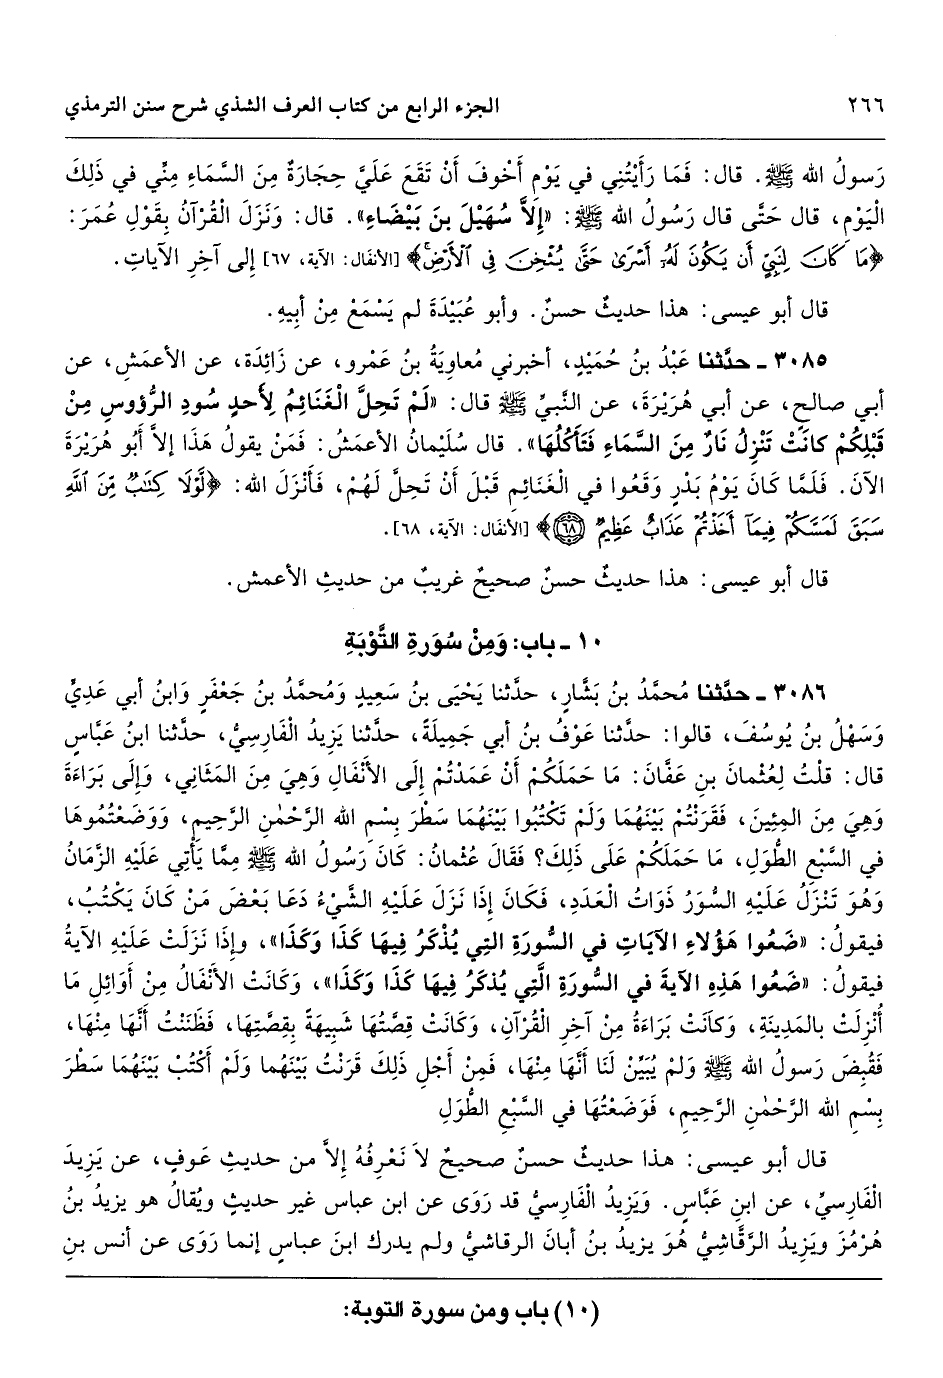 ٢٦٦ الجزء الرابع من كتاب العرف الشذي شرح سنن الترمذي
رَسولُ الله ﷺ. قال: فَمَا رَأَيْتُنِي في يَوْمٍ أَخْوفَ أَنْ تَقَعَ عَلَيَّ حِجَارَةٌ مِنَ السَّمَاءِ مِنِّي في ذَلِكَ
الْيَوْمِ، قال حَتَّى قال رَسُولُ الله ﷺ: «إِلاَّ سُهَيْلَ بنَ بَيْضَاءِ». قال: وَنَزَلَ الْقُرْآنُ بِقَوْلِ عُمَرَ:
﴿مَا كَانَ لِنَبِيٍّ أَن يَكُونَ لَهُۥٓ أَسْرَىٰ حَتَّىٰ يُثْخِنَ فِي ٱلْأَرْضِۚ﴾ [الأنفال: الآية، ٦٧] إلى آخِرِ الآياتِ.
قال أبو عيسى: هذا حديثٌ حسنٌ. وأبو عُبَيْدَةَ لم يَسْمَعْ مِنْ أبِيهِ.
٣٠٨٥ ـ حدَّثنا عَبْدُ بنُ حُمَيْدٍ، أخبرني مُعاوِيَةُ بنُ عَمْرٍو، عن زَائِدَةَ، عن الأعمَشِ، عن
أبي صالحٍ، عن أبي هُرَيْرَةَ، عن النَّبيِّ ﷺ قال: «لَمْ تَحِلَّ الْغَنَائِمُ لِأَحدٍ سُودِ الرُّؤوسِ مِنْ
قَبْلِكُمْ كانَتْ تَنْزِلُ نَارٌ مِنَ السَّمَاءِ فَتَأكُلُهَا». قال سُلَيْمانُ الأعمَشُ: فَمَنْ يقولُ هَذَا إلاَّ أَبُو هُرَيْرَةَ
الآنَ. فَلَمَّا كَانَ يَوْمُ بَدْرٍ وَقَعُوا في الْغَنائِمِ قَبْلَ أَنْ تَحِلَّ لَهُمْ، فَأَنْزَلَ الله: ﴿لَّوْلَا كِتَـٰبٌ مِّنَ ٱللَّهِ
سَبَقَ لَمَسَّكُمْ فِيمَآ أَخَذْتُمْ عَذَابٌ عَظِيمٌ ﴿٦٨﴾﴾ [الأنفال: الآية، ٦٨].
قال أبو عيسى: هذا حديثٌ حسنٌ صحيحٌ غريبٌ من حديثِ الأعمش.
١٠ ـ باب: وَمِنْ سُورَةِ التَّوْبَةِ
٣٠٨٦ ـ حدَّثنا مُحمَّدُ بنُ بَشَّارٍ، حدَّثنا يَحْيَى بنُ سَعِيدٍ وَمُحمَّدُ بنُ جَعْفَرٍ وَابنُ أبي عَدِيٍّ
وَسَهْلُ بنُ يُوسُفَ، قالوا: حدَّثنا عَوْفُ بنُ أبي جَمِيلَةَ، حدَّثنا يَزِيدُ الْفَارِسِيُّ، حدَّثنا ابنُ عَبَّاسٍ
قال: قلْتُ لِعُثْمانَ بنِ عَفَّانَ: مَا حَمَلَكُمْ أَنْ عَمَدْتُمْ إلَى الأنْفَالِ وَهِيَ مِنَ المَثَانِي، وَإلَى بَرَاءَةَ
وَهِيَ مِنَ المِئِينَ، فَقَرَنْتُمْ بَيْنَهُمَا وَلَمْ تَكْتُبُوا بَيْنَهُمَا سَطْرَ بِسْمِ الله الرَّحْمٰنِ الرَّحِيمِ، وَوَضَعْتُمُوهَا
في السَّبْعِ الطُّوَلِ، مَا حَمَلَكُمْ عَلَى ذَلِكَ؟ فَقَالَ عُثْمَانُ: كَانَ رَسُولُ الله ﷺ مِمَّا يَأْتِي عَلَيْهِ الزَّمَانُ
وَهُوَ تَنْزِلُ عَلَيْهِ السُّوَرُ ذَوَاتُ الْعَدَدِ، فَكَانَ إذَا نَزَلَ عَلَيْهِ الشَّيْءُ دَعَا بَعْضَ مَنْ كَانَ يَكْتُبُ،
فيقولُ: «ضَعُوا هَؤُلاءِ الآيَاتِ في السُّورَةِ التِي يُذْكَرُ فِيهَا كَذَا وَكَذَا»، وإذَا نَزَلَتْ عَلَيْهِ الآيةُ
فيقولُ: «ضَعُوا هَذِهِ الآيَةَ في السُّورَةِ الَّتِي يُذكَرُ فِيهَا كَذَا وَكَذَا»، وَكَانَتْ الأنْفَالُ مِنْ أَوَائِلِ مَا
أُنْزِلَتْ بالمَدِينَةِ، وَكَانَتْ بَرَاءَةُ مِنْ آخِرِ الْقُرْآنِ، وَكَانَتْ قِصَّتُهَا شَبِيهَةً بِقِصَّتِهَا، فَظَنَنْتُ أنَّهَا مِنْهَا،
فَقُبِضَ رَسولُ الله ﷺ وَلَمْ يُبَيِّنْ لَنَا أَنَّهَا مِنْهَا، فَمِنْ أَجْلِ ذَلِكَ قَرَنْتُ بَيْنَهُما وَلَمْ أَكْتُبْ بَيْنَهُمَا سَطْرَ
بِسْمِ الله الرَّحْمٰنِ الرَّحِيمِ، فَوَضَعْتُهَا في السَّبْعِ الطُّوَلِ
قال أبو عيسى: هذا حديثٌ حسنٌ صحيحٌ لاَ نَعْرِفُهُ إلاَّ من حديثِ عَوفٍ، عن يَزِيدَ
الْفَارِسِيِّ، عن ابنِ عَبَّاسٍ. وَيَزِيدُ الْفَارِسيُّ قد رَوَى عن ابن عباس غير حديثٍ ويُقالُ هو يزيدُ بنُ
هُرْمُزَ ويَزِيدُ الرَّقَاشِيُّ هُوَ يزيدُ بنُ أبانَ الرقاشيُّ ولم يدرك ابنَ عباسٍ إنما رَوَى عن أنس بنِ
(١٠) باب ومن سورة التوبة: